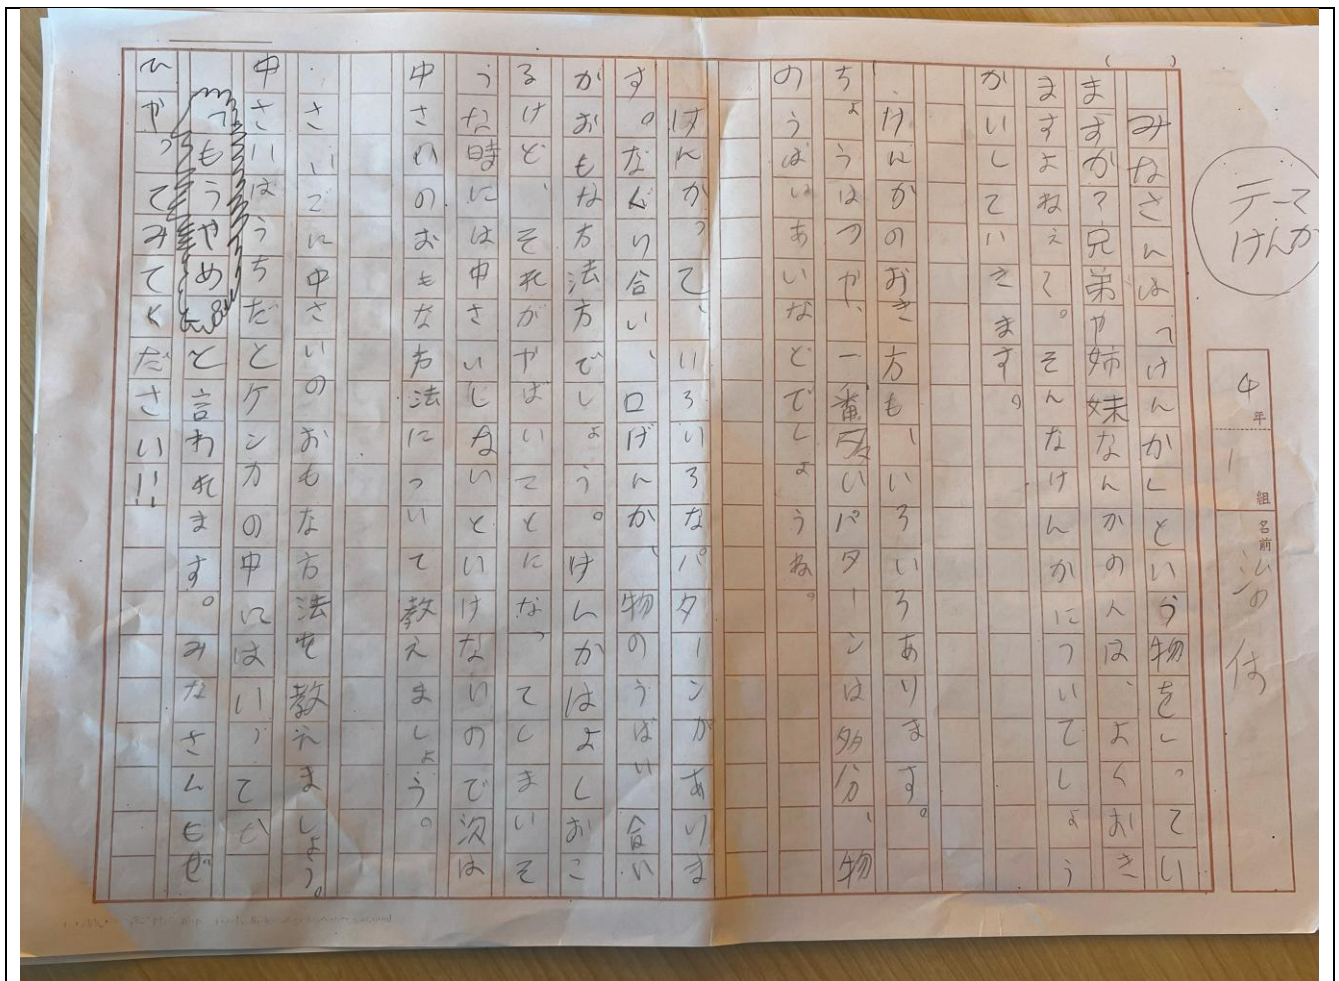 テーマ
けんか
4年
1組
名前
みなさんは、けんかしという物をしってい
ますか？兄弟や姉妹なんかの人は、よくおき
ますよねぇて。そんなけんかについてしょう
かいしていきます。
けんかのおき方も、いろいろあります。
ちょうはつや、一番多いパターンは多分、物
のうばいあいなどでしょうね。
けんかって、いろいろなパターンがありま
す。なぐり合い、口げんか、物のうばい合い
がおもな方法方でしょう。けんかはよしおこ
るけど、それがやばいことになってしまいそ
うな時には中さいしないといけないので次は
中さいのおもな方法について教えましょう。
さいごに中さいのおもな方法を教えましょう。
中さいはうちだとケンカの中にはいってっも
「もうやめ
と言われます。みなさんもぜ
ひやってみてください!!